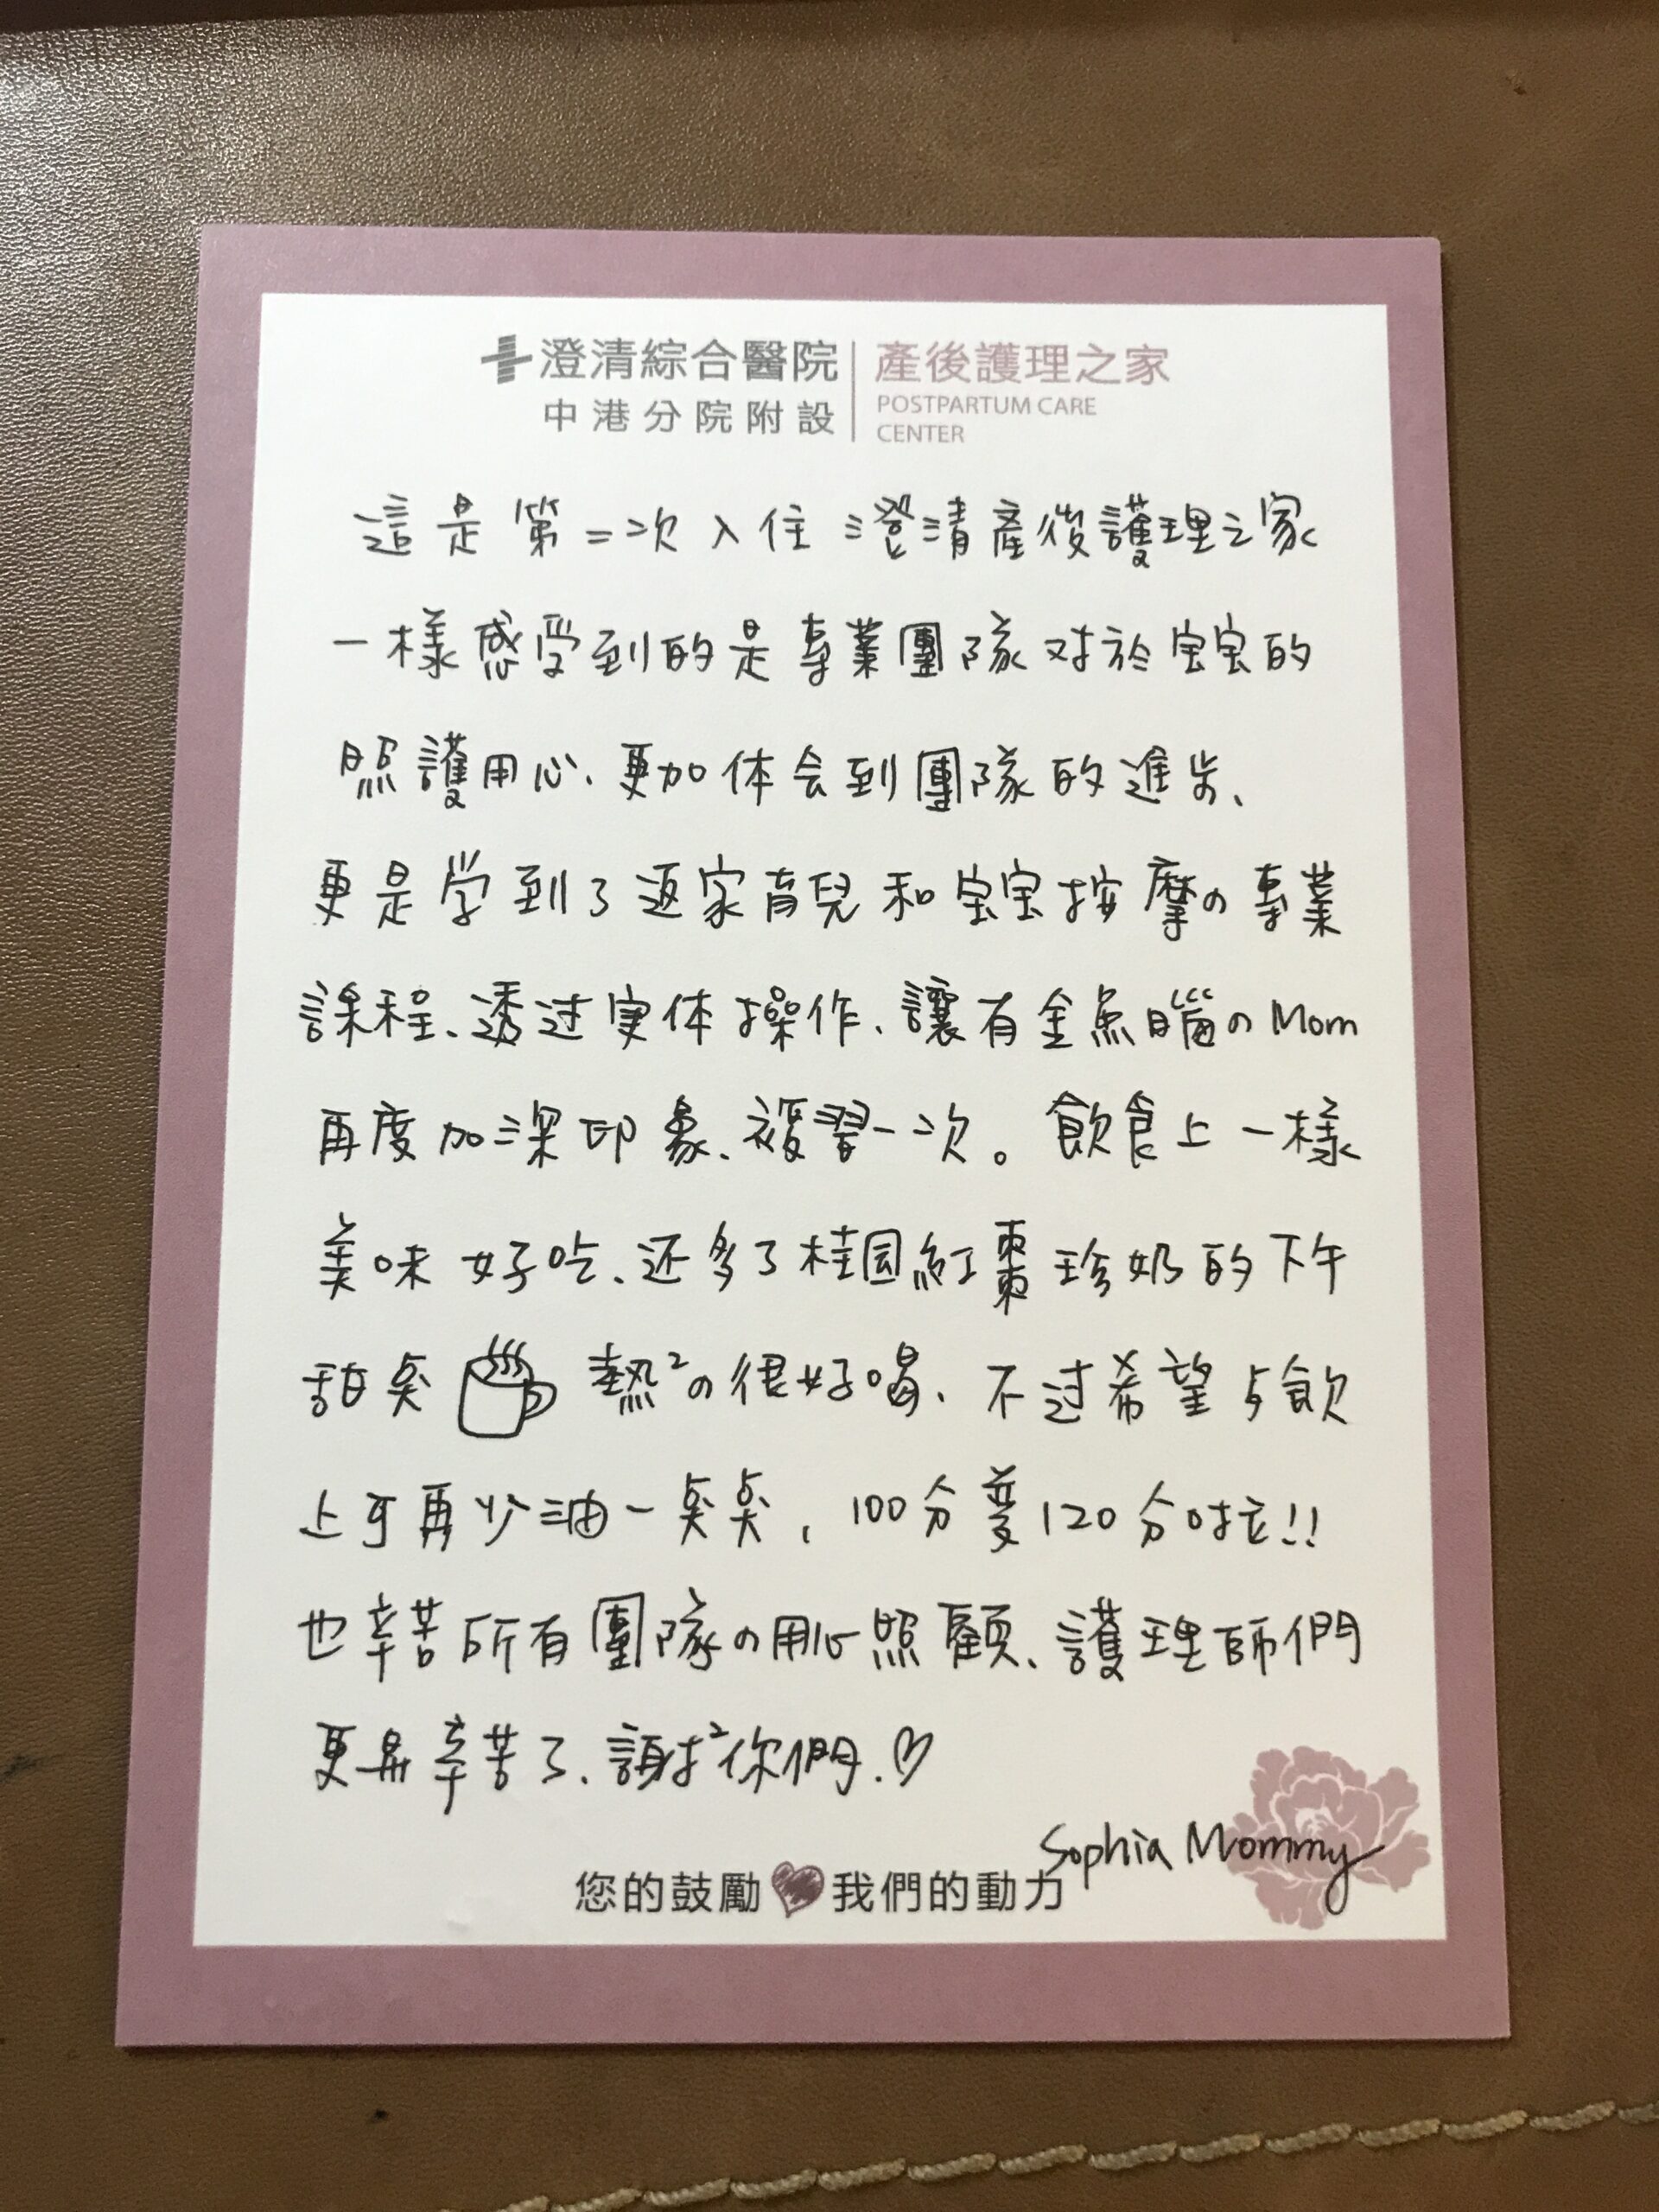 澄清綜合醫院 產後護理之家
中港分院附設 POSTPARTUM CARE
CENTER
這是第二次入住澄清產後護理之家
一樣感受到的是專業團隊对於宝宝的
照護用心、更加体会到團隊的進步、
更是学到了返家育兒和宝宝按摩の專業
課程、透过实体操作、讓有金魚腦のMom
再度加深印象、複習一次。飲食上一樣
美味好吃、还多了桂园紅棗珍奶的下午
甜点 熱²の很好喝、不过希望与飲
上可再少油一点点,100分變120分啦!!
也辛苦所有團隊の用心照顧、護理師們
更是辛苦了、謝²你們.♡
Sophia Mommy
您的鼓勵 我們的動力